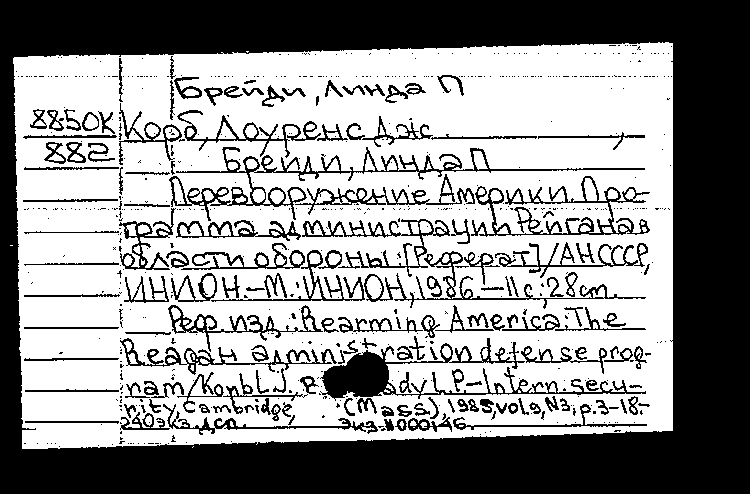 Брейди, Линда П
8850К Корб, Лоуренс Дж. ,
882 Брейди, Линда П
Перевооружение Америки. Про-
грамма администрации Рейгана в
области обороны: [Реферат] / АН СССР,
ИНИОН.—М.: ИНИОН, 1986.—11 с.; 28 cm.
Реф. изд.: Rearming America: The
Reagan administration defense prog-
ram / Konb L.J., ady L.P.—Intern. secu-
rity, Cambridge, (Mass), 1985, vol. 9, N3, p. 3-18.-
240 экз. дсп. Экз. N000146.